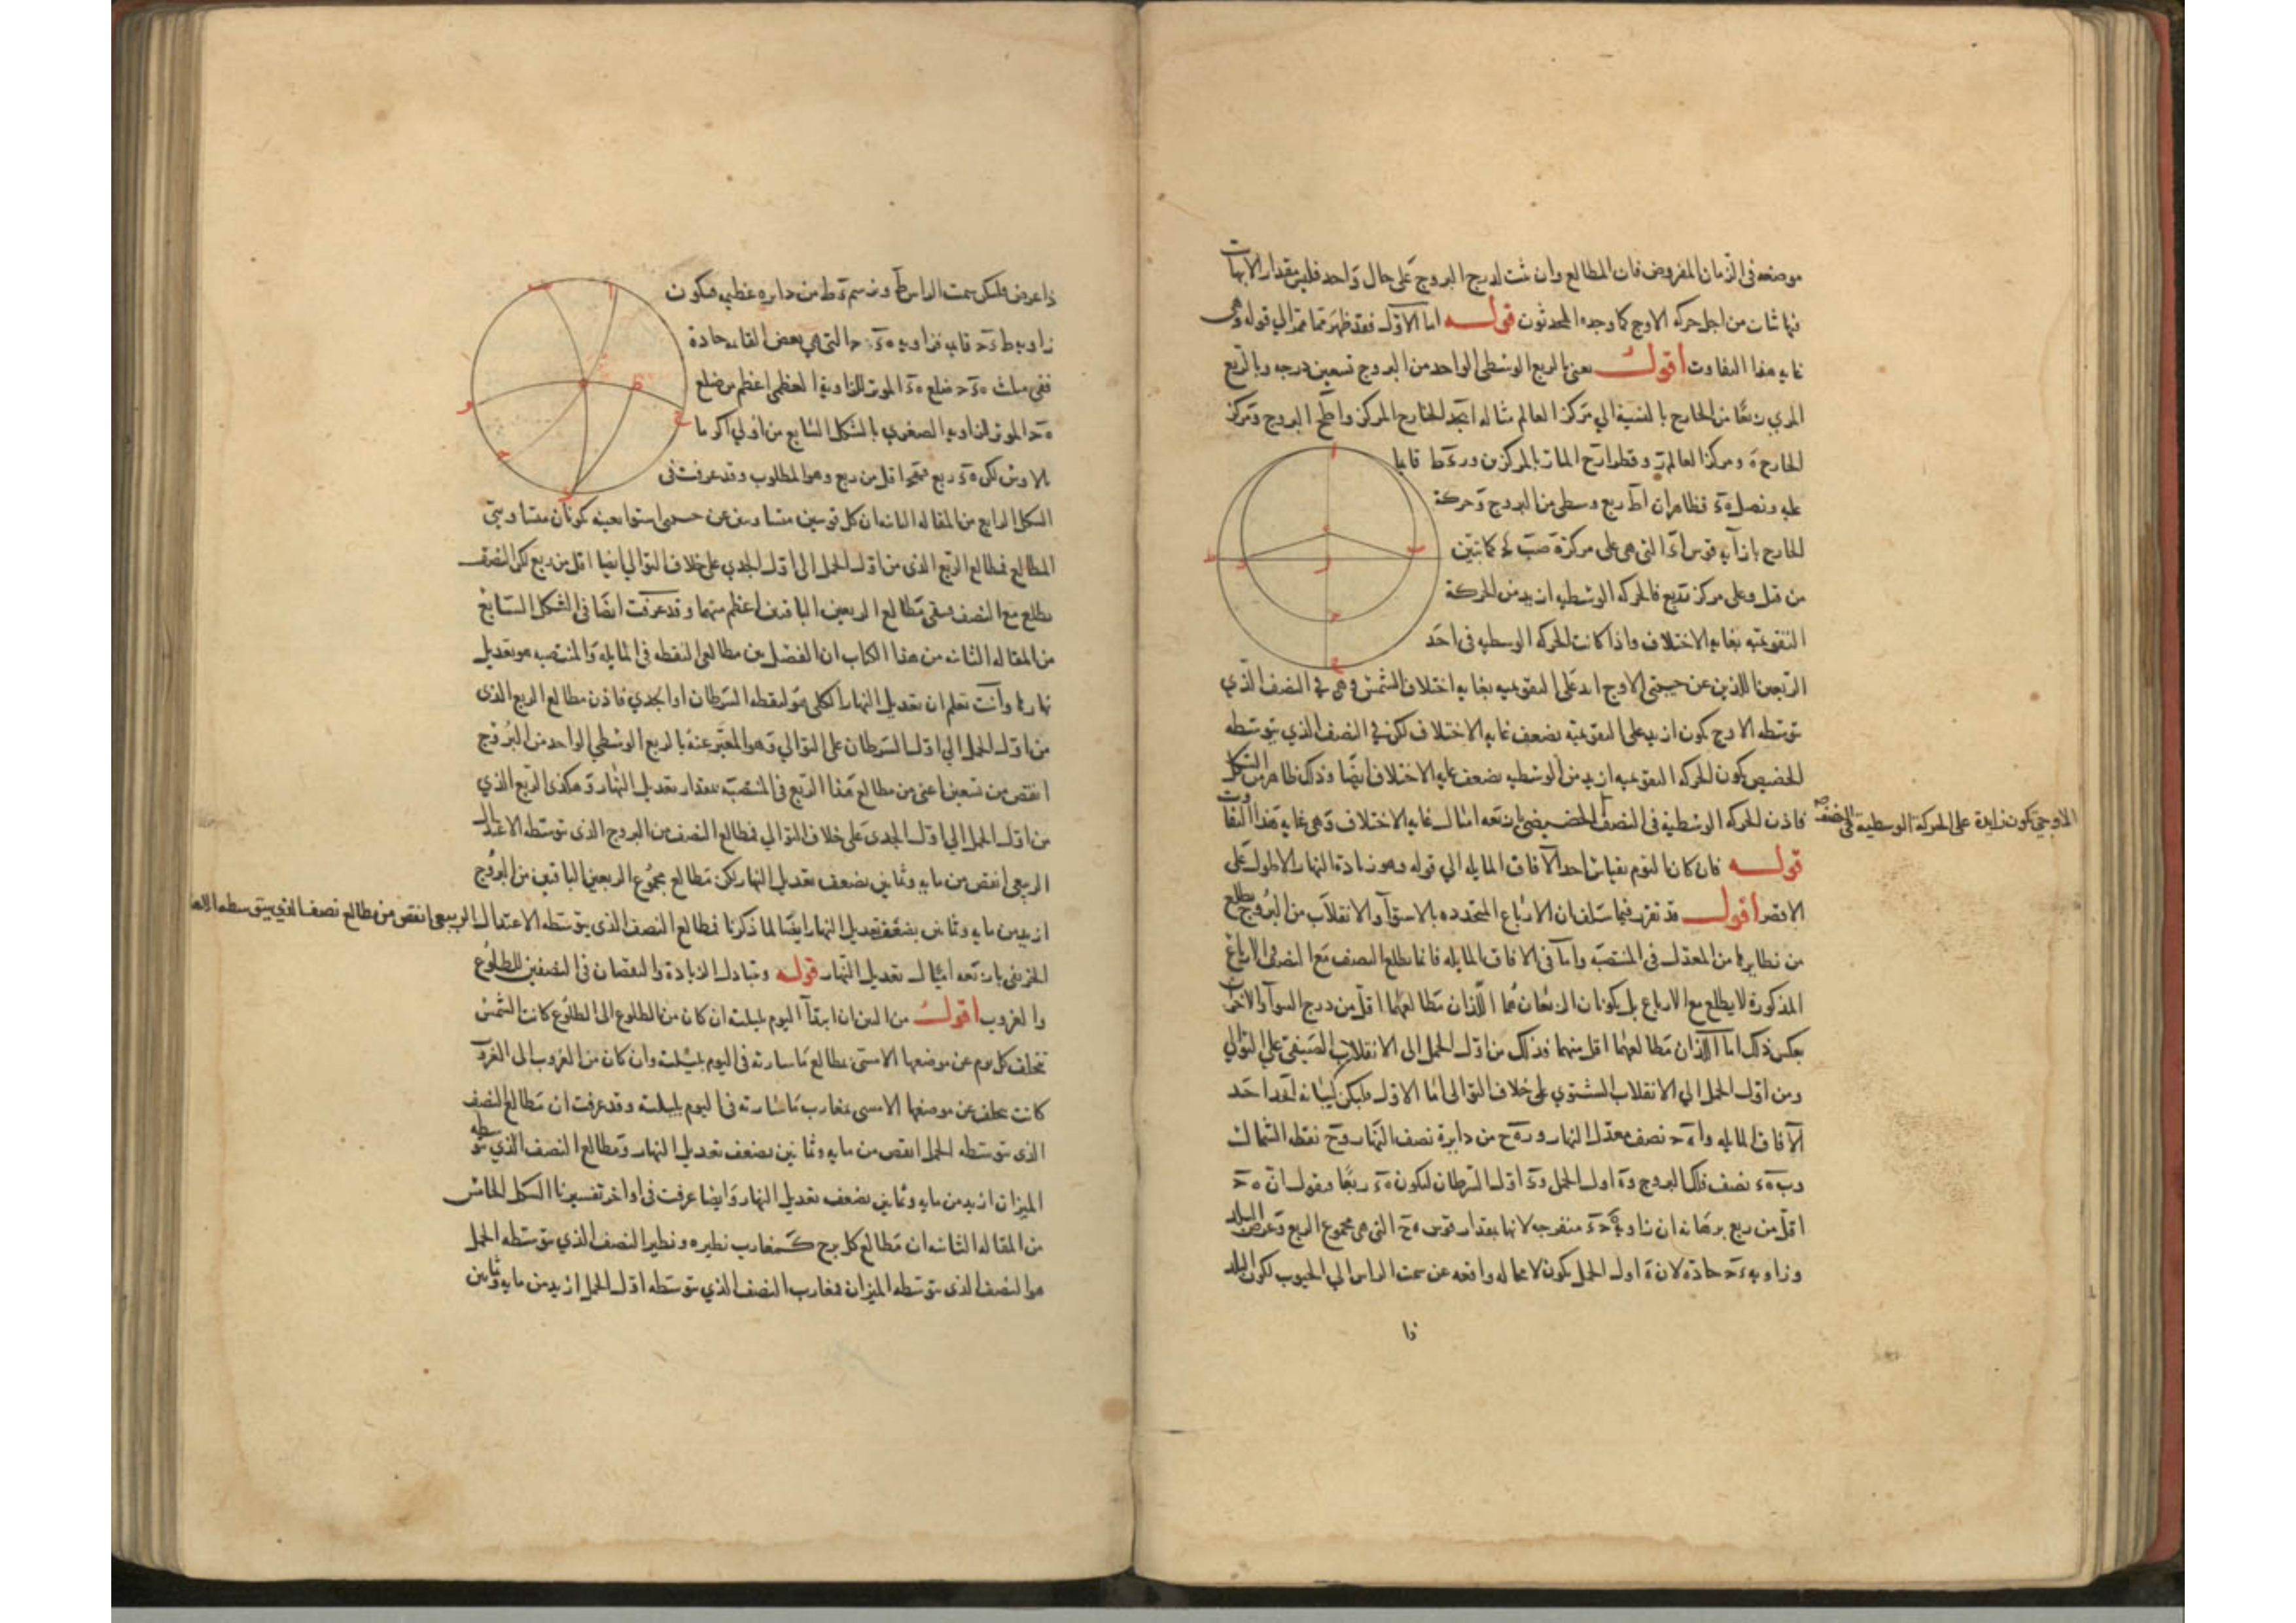 موضعه فى الزمان المفروض فان المطالع وان ثبت لدرج البروج على حال واحد فليس مقدار الابهات
فيها ثابت من اجل حركه الاوج كما وجده المحدثون قولـــه اما الاول فقد ظهر مما مر الي قوله وهى
غايه هذا التفاوت اقول يعنى بالربع الوسطى الواحد من البروج تسعين درجه وبالربع
المري ربعًا من الخارج بالنسبة الي مركز العالم مثاله ابجد الخارج المركز واطح البروج ومركز
الخارج ه ومركز العالم ز وقطر ازح المار بالمركزين و
عليه ونصل فظاهر ان اط ربع وسطى من البروج وحركة
الخارج بازايه قوس التى هى على مركزه كما تبين
من قبل وعلى مركز ربع فالحركه الوسطيه ازيد من الحركة
التقويميه بغايه الاختلاف واذا كانت الحركه الوسطيه فى احد
الربعين اللذين عن جنبتى الاوج ازيد على التقويميه بغايه اختلاف الشمس وهى فى النصف الذي
يتوسطه الاوج يكون ازيد على التقويميه بضعف غايه الاختلاف لكن فى النصف الذي يتوسطه
الحضيض يكون الحركه التقويميه ازيد من الوسطيه بضعف غايه الاختلاف ايضا وذلك ظاهر من الشكل
فاذن الحركه الوسطية فى النصف الحضيضى باربعه امثال غايه الاختلاف وهى غايه هذا التفاوت
الاوجى يكون زايدة على الحركة الوسطية فى النصف
قولـــه فان كان اليوم بقياس احد الآفاق المايله الي قوله وهو زيادة النهار الاطول على
الاقصر اقول قد تقرر فيما سلف ان الارباع المتحدده بالاستوآ والانقلاب من البروج يطلع
من نظايرها من المعدل فى المنتصبه واما فى الافاق المايله فانما يطلع النصف مع النصف والارباع
المذكورة لا يطلع مع الارباع بل يكونان الربعان هما اللذان مطالعهما اقل من درج السوآ والاخران
بعكس ذلك اما اللذان مطالعهما اقل منهما فذلك من اول الحمل الى الانقلاب الصيفى على التوالي
ومن اول الحمل الي الانقلاب الشتوي على خلاف التوالى اما الاول فليكن لبيانه افق احد
الآفاق المايله نصف معدل النهار و من دايرة نصف النهار و نقطه الشمال
و نصف فلك البروج و اول الحمل و اول السرطان ليكون ربعًا ونقول ان
اقل من ربع برهانه ان زاوية منفرجه لانها بمقدار قوس التى هى مجموع الربع وعرض البلد
وزاويه حادة لان اول الحمل يكون لا محاله واقعه عن سمت الراس الي الجنوب لكون البلد
ذا
ذا عرض فليكن سمت الراس ط ونرسم من دايره عظمى فيكون
زاويه قايمه فزاويه التى هى بعض القايمه حادة
ففى مثلث ضلع الموتر للزاويه العظمى اعظم من ضلع
الموتر للزاويه الصغرى بالشكل السابع من اولي اكر ما
لاوس لكن ربع فهو اقل من ربع وهو المطلوب وقد عرفت فى
الشكل الرابع من المقاله الثانيه ان كل قوسين متساويتين عن جنبتى استوا بعينه يكونان متساويتى
المطالع فمطالع الربع الذى من اول الحمل الى اول الجدي على خلاف التوالي ايضا اقل من ربع لكن النصف
يطلع مع النصف فيبقى مطالع الربعين الباقيين اعظم منهما وقد عرفت ايضا فى الشكل السابع
من المقاله الثانيه من هذا الكتاب ان الفضل بين مطالعى النقطه فى المايله والمنتصبه هو تعديل
نهارها وانت تعلم ان تعديل النهار الكلى هو لنقطه السرطان او الجدي فاذن مطالع الربع الذى
من اول الحمل الي اول السرطان على التوالي وهو المعبر عنه بالربع الوسطى الواحد من البروج
انقص من تسعين اعنى من مطالع هذا الربع فى المنتصبه بمقدار تعديل النهار وهكذى الربع الذي
من اول الحمل الي اول الجدى على خلاف التوالي فمطالع النصف من البروج الذى يتوسطه الاعتدال
الربيعى انقص من مايه وثمانين بضعف تعديل النهار لكن مطالع مجموع الربعين الباقيين من البروج
ازيد من مايه وثمانين بضعف تعديل النهار ايضا لما ذكرنا فمطالع النصف الذى يتوسطه الاعتدال الربيعى انقص من مطالع نصف الذي يتوسطه الاعتدال
الخريفى باربعه امثال تعديل النهار قوله وتبادل الزيادة والنقصان فى النصفين للطلوع
والغروب اقول من البين ان ابتدآ اليوم بليلته ان كان من الطلوع الى الطلوع كانت الشمس
تخلف كل يوم عن موضعها الامسى بمطالع ما سارته فى اليوم بليلته وان كان من الغروب الى الغروب
كانت تخلف عن موضعها الامسى بمغارب ما سارته فى اليوم بليلته وقد عرفت ان مطالع النصف
الذى يتوسطه الحمل انقص من مايه وثمانين بضعف تعديل النهار ومطالع النصف الذي يتوسطه
الميزان ازيد من مايه وثمانين بضعف تعديل النهار وايضا عرفت فى اواخر تفسيرنا الشكل الخامس
من المقاله الثانيه ان مطالع كل برج كمغارب نظيره ونظير النصف الذي يتوسطه الحمل
هو النصف الذى يتوسطه الميزان فمغارب النصف الذي يتوسطه اول الحمل ازيد من مايه وثمانين